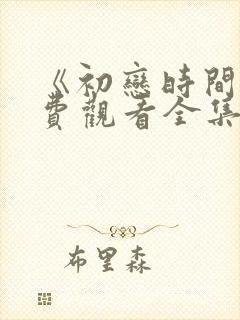 《初戀時間
費觀看全集
布里森